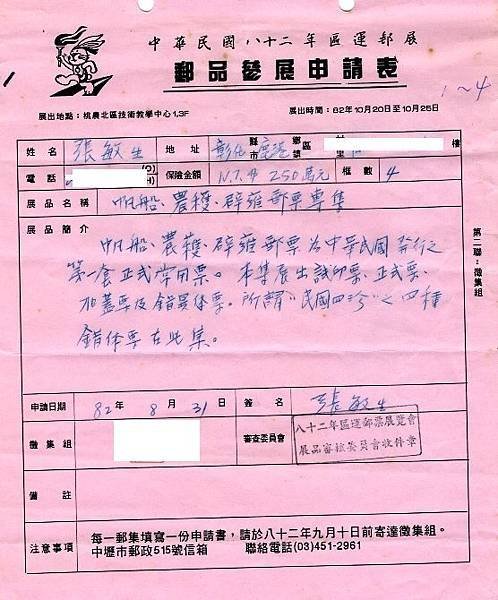 中華民國八十二年區運郵展
郵品參展申請表
1~4
展出地點：桃農北區技術教學中心1,3F
展出時間：82年10月20日至10月25日
姓名 張敏生 地址 彰化 縣市 鹿港 鄉鎮區 里 樓
電話 (O) (H) 保險金額 N.T.$ 250萬元 框數 4
展品名稱 帆船、農穫、辟雍郵票專集
展品簡介
帆船、農穫、辟雍郵票為中華民國發行之
第一套正式常用票。本集展出試印票、正式票、
加蓋票及錯變体票。所謂"民國四珍"之四種
錯体票在此集。
第二聯：徵集組
申請日期 82年 8月 31日 簽名 張敏生
徵集組 審查委員會
八十二年區運郵票展覽會
展品審核委員會收件章
備註
注意事項
每一郵集填寫一份申請書，請於八十二年九月十日前寄達徵集組。
中壢市郵政515號信箱 聯絡電話(03)451-2961